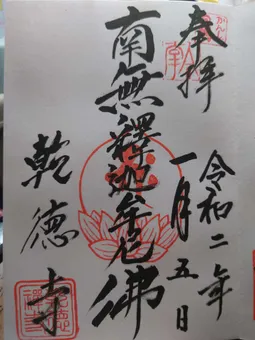 奉拝
令和二年
一月五日
南無釋迦牟尼佛
乾德寺